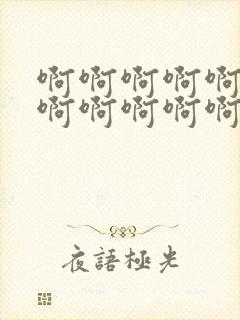 啊啊啊啊啊
啊啊啊啊啊
夜語極光